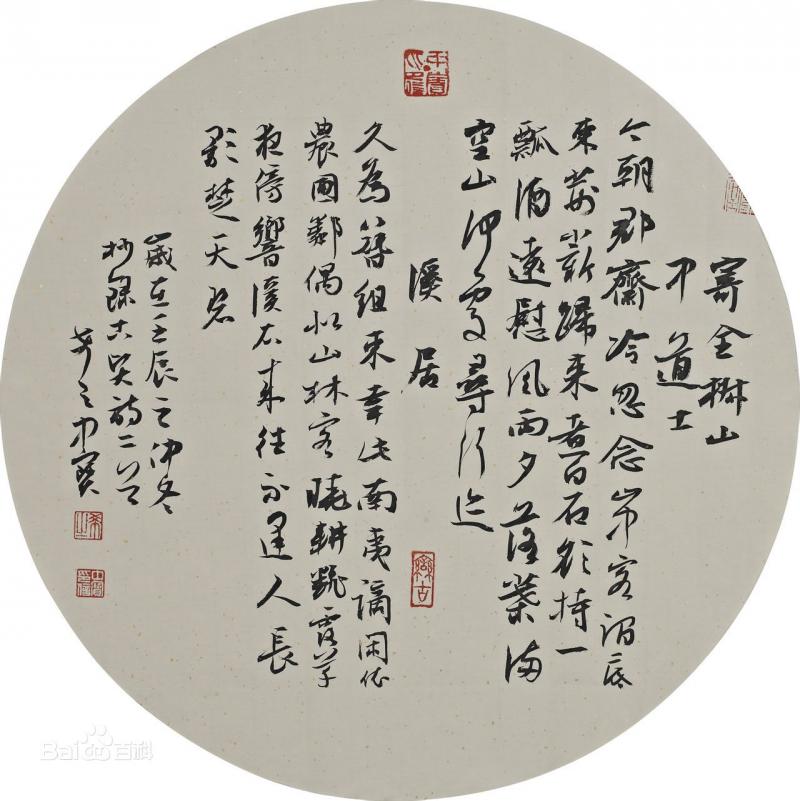 寄全椒山
中道士
今朝郡齋冷忽念山中客澗底
束荊薪歸來煮白石欲持一
瓢酒遠慰風雨夕落葉滿
空山何處尋行迹
溪居
久為簪組束幸此南夷謫閑依
農圃鄰偶似山林客曉耕翻露草
夜傍響溪石來往不逢人長
歌楚天碧
歲在壬辰之仲冬
抄録古賢詩二首
之中寶
Bai百科